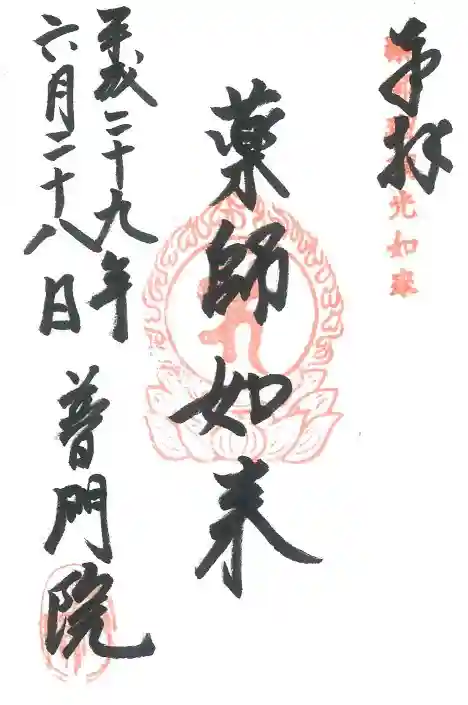 奉拝
光如来
薬師如来
平成二十九年
六月二十八日
普門院